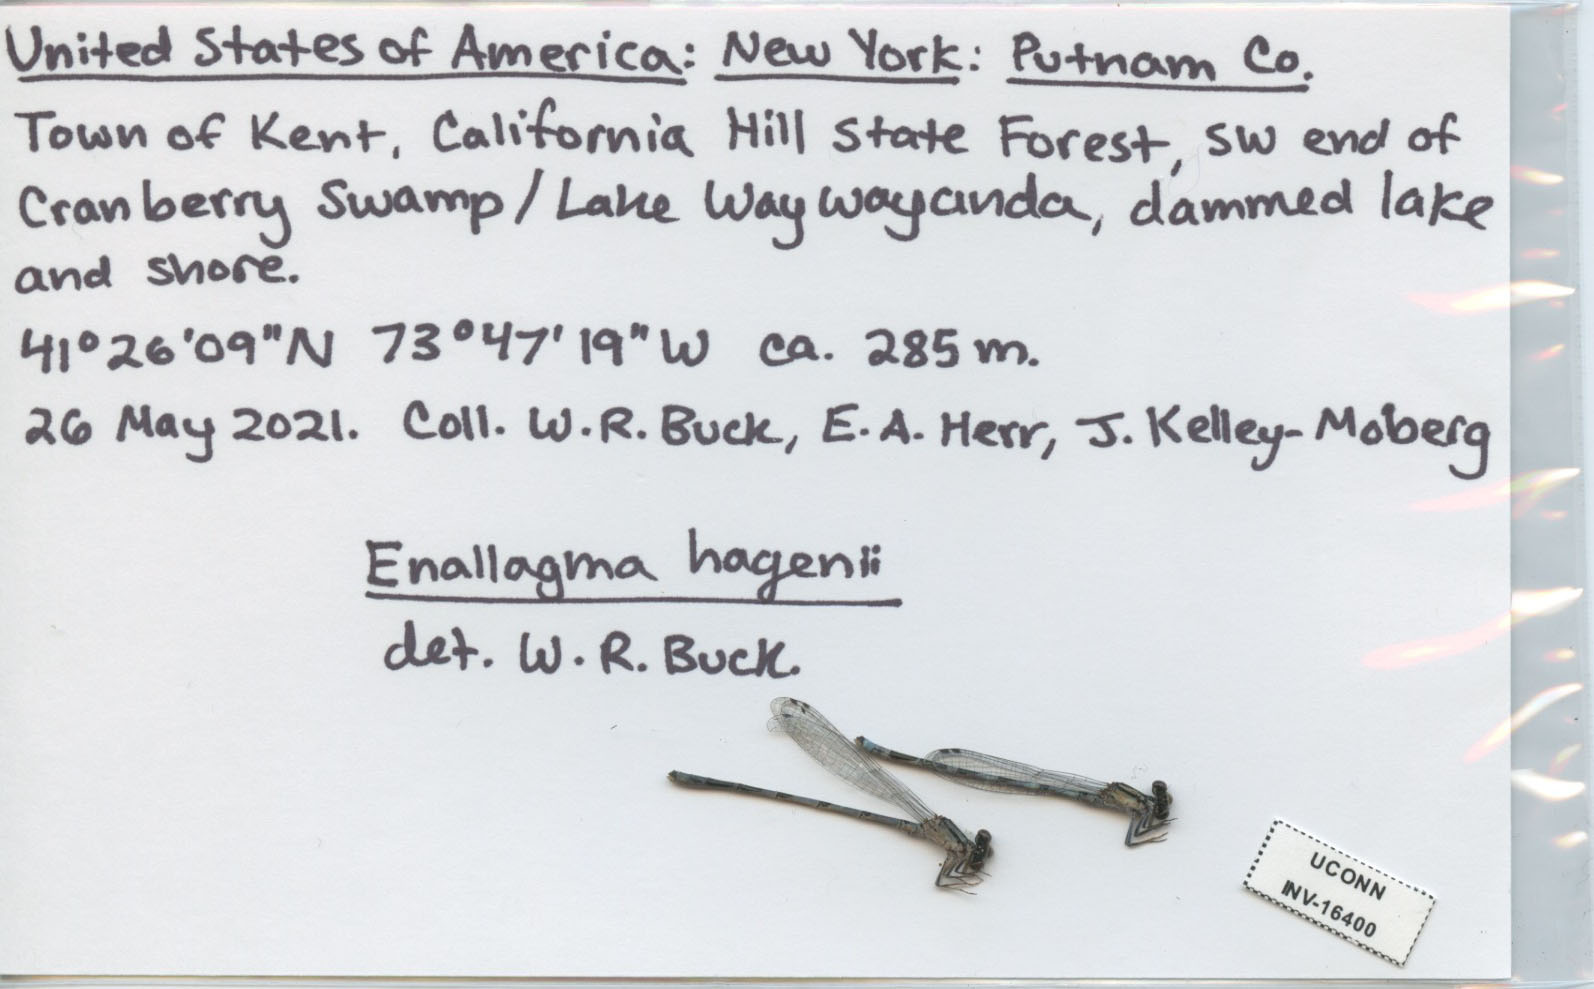 United States of America: New York: Putnam Co.
Town of Kent, California Hill State Forest, SW end of
Cranberry Swamp/Lake Waywayanda, dammed lake
and shore.
41°26'09"N 73°47'19"W ca. 285 m.
26 May 2021. Coll. W.R. Buck, E.A. Herr, J. Kelley-Moberg
Enallagma hagenii
det. W.R. Buck.
UCONN
INV-16400